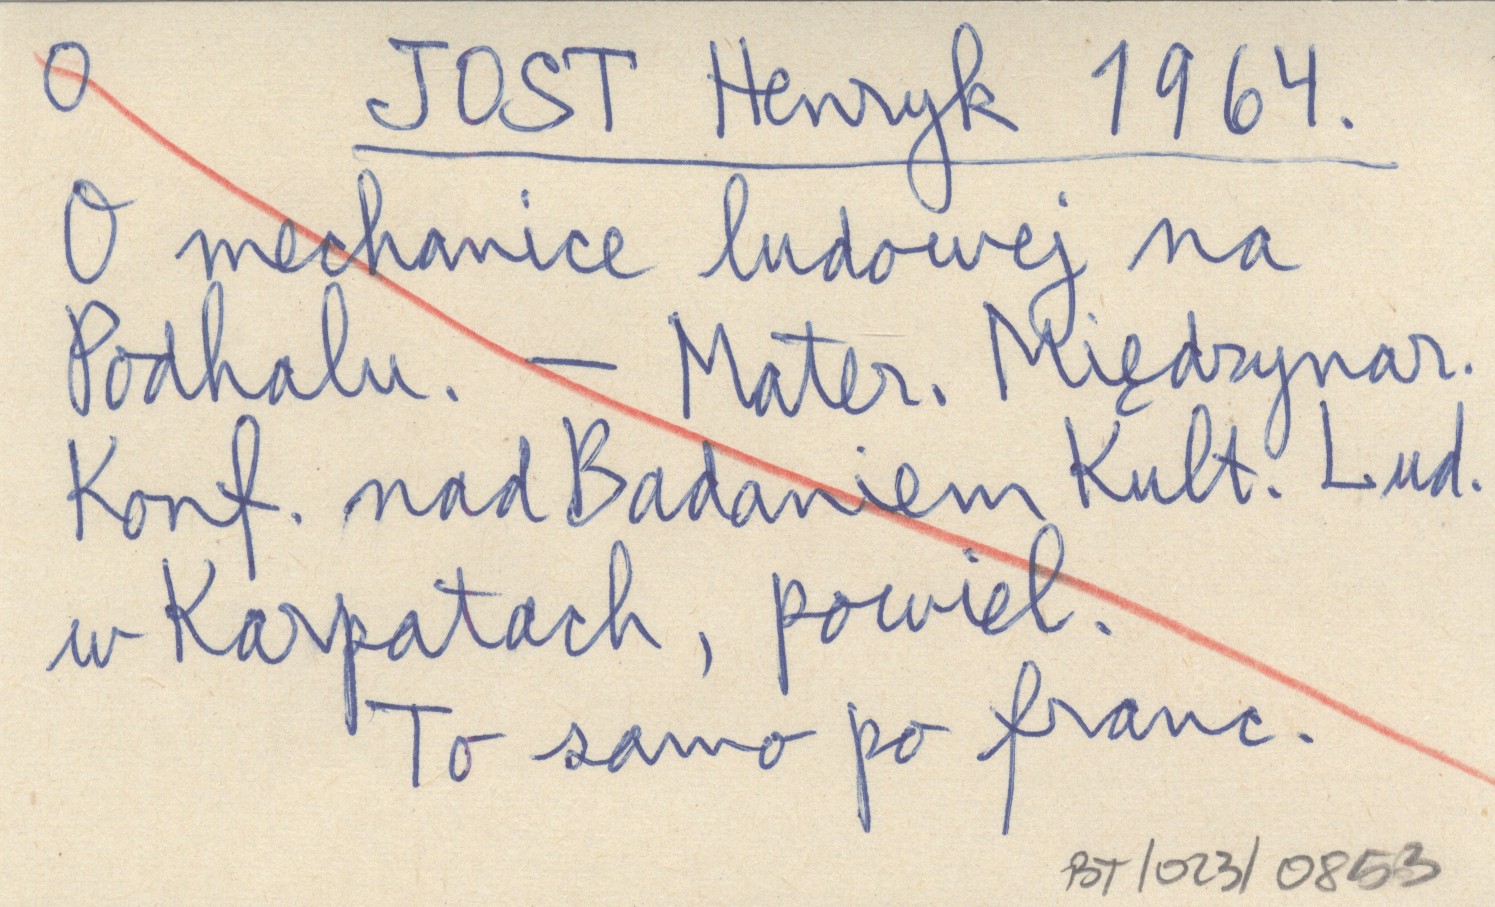 O JOST Henryk 1964.
O mechanice ludowej na
Podhalu. — Mater. Międzynar.
Konf. nad Badaniem Kult. Lud.
w Karpatach, powiel.
To samo po franc.
BT/023/0853